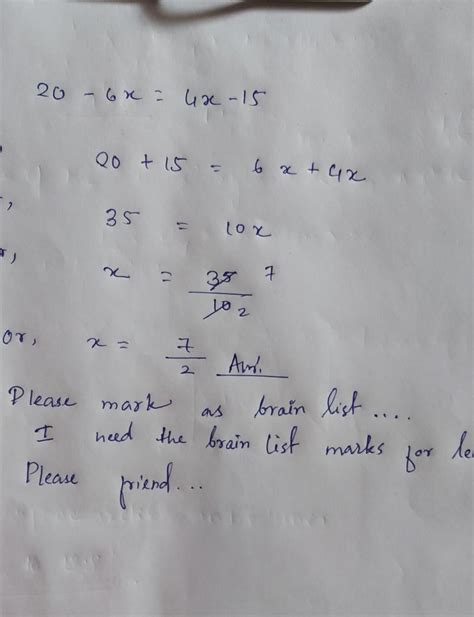 20 - 6x = 4x - 15
20 + 15 = 6x + 4x
35 = 10x
x = 35/10 7 2
or, x = 7/2 Ans.
Please mark as brain list ....
I need the brain list marks for le
Please friend...